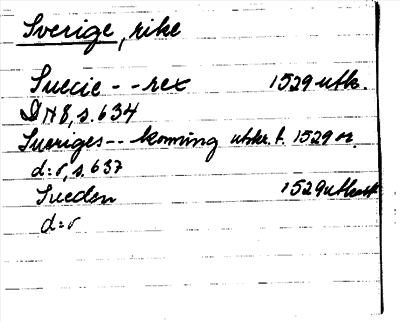 Sverige, rike
Suecie - - rex 1529 utk.
DN 8, s. 634
Sveriges - - konning utskr. f. 1529 or.
d:o, s. 637
Sueden 1529 utkast
d:o